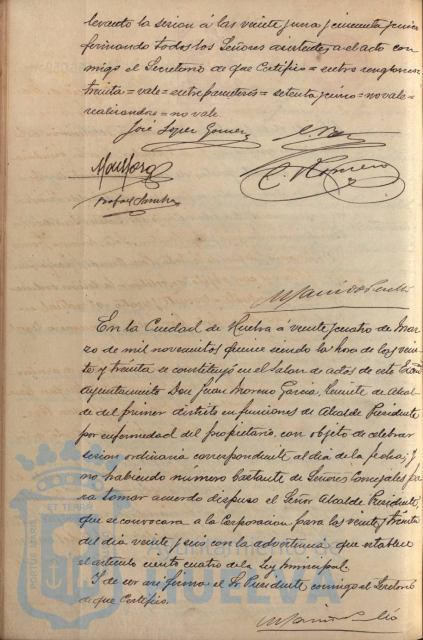 levanto la sesion á las veinte y una y cincuenta y cinco
firmando todos los Señores asistentes a el acto con
migo el Secretario de que Certifico = entre renglones
treinta = vale = entre parentesis = setenta y cinco = no vale =
realizandose = no vale
José Lopez Gomez
C. Romero
En la Ciudad de Huelva á veinte y cuatro de Mar
zo de mil novecientos quince siendo la hora de las vein
te y treinta se constituyó en el Salon de actos de este Excmo
Ayuntamiento Don Juan Moreno Garcia, Teniente de Alcal
de del primer distrito en funciones de Alcalde Presidente
por enfermedad del propietario, con objeto de celebrar
sesion ordinaria correspondiente al dia de la fecha; y
no habiendo número bastante de Señores Concejales pa
ra tomar acuerdo dispuso el Señor Alcalde Presidente,
que se convocara a la Corporacion para las veinte y treinta
del dia veinte y seis con la advertencia que establece
el articulo ciento cuatro de la Ley Municipal.
Y de ser asi firma el Sr. Presidente conmigo el Secretario
de que Certifico.
PORTUS MARIS ET TERRAE
Ayuntamiento de
HUELVA